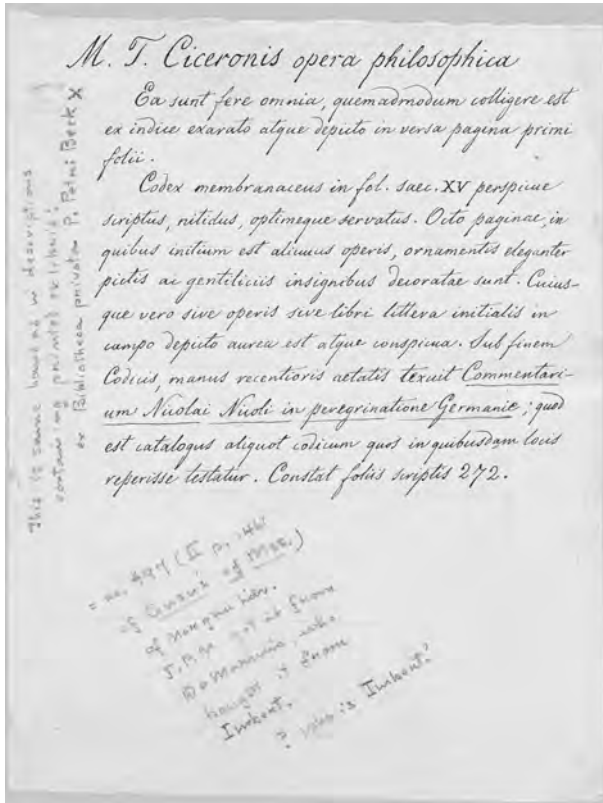 M. T. Ciceronis opera philosophica
Ea sunt fere omnia, quemadmodum colligere est
ex indice exarato atque depicto in versa pagina primi
folii.
Codex membranaceus in fol. saec. XV perspicue
scriptus, nitidus, optimeque servatus. Octo paginae, in
quibus initium est alicuius operis, ornamentis eleganter
pictis ac gentiliciis insignibus decoratae sunt. Cuius-
que vero sive operis sive libri littera initialis in
campo depicto aurea est atque conspicua. Sub finem
Codicis, manus recentioris aetatis texuit Commentari-
um Nicolai Nicoli in peregrinatione Germanie; quod
est catalogus aliquot codicum quos in quibusdam locis
reperisse testatur. Constat foliis scriptis 272.
This is same hand as in descriptions
containing printed ex libris:
ex Bibliotheca privata P. Petri Beckx
= no. 497 (II p. 1461
of Census of Mss.)
of Morgan Libr.
J.P.M. got it from
De Marinis, who
bought it from
Imbert.
? Who is Imbert?